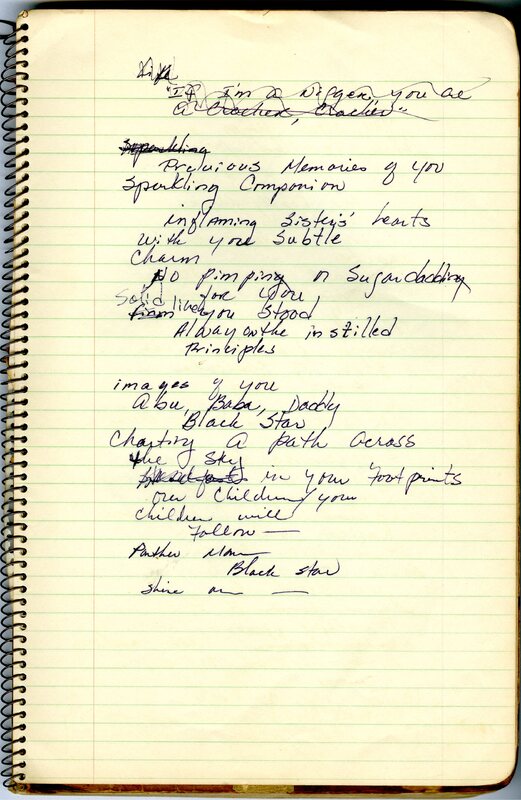 "If I'm a Nigger, you are
A Cracker, Cracker"
Sparkling
Previous Memories of you
Sparkling Companion
inflaming Sisters' hearts
With your Subtle
Charm
No pimping or Sugardadding
Solid for you
firm like you Stood
Always on the instilled
Principles
images of you
Abu, Baba, Daddy
Black Star
Charting A path across
the Sky
in your footprints
our Children your
Children will
Follow —
Panther Man
Black Star
Shine on —